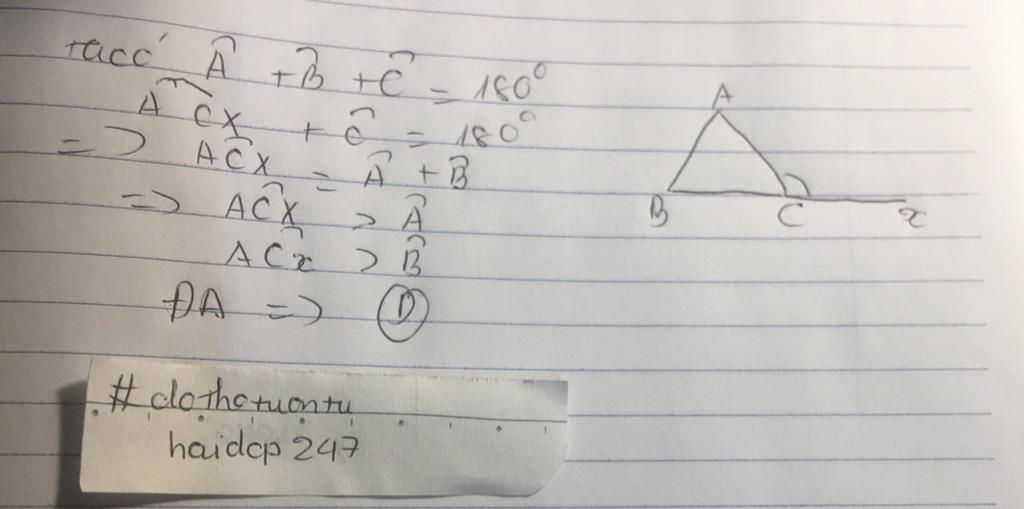 tacó Â + B̂ + Ĉ = 180°
ACx̂ + Ĉ = 180°
=> AĈx = Â + B̂
=> AĈx > Â
AĈx > B̂
ĐA => D
A
B C x
# dothotuontu
haidcp 247